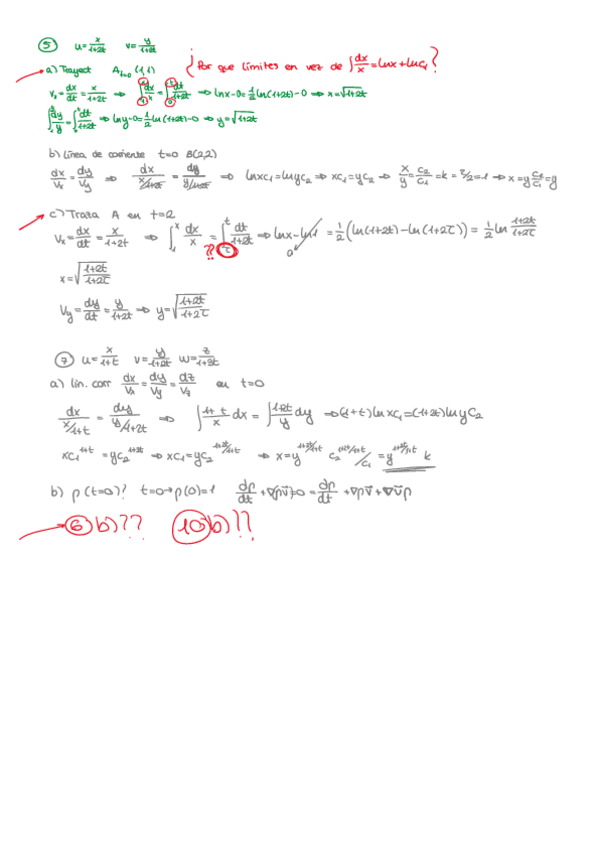 5 u=x/1+2t v=y/1+2t
a) Trayect A t=0 (1,1) ¿Por que límites en vez de ∫dx/x = lnx + lnc₁?
Vx = dx/dt = x/1+2t ⇒ ∫₁ˣ dx/x = ∫₀ᵗ dt/1+2t ⇒ lnx-0 = 1/2 ln(1+2t)-0 ⇒ x=√1+2t
∫dy/y = ∫dt/1+2t ⇒ lny-0 = 1/2 ln(1+2t)-0 ⇒ y=√1+2t
b) Línea de corriente t=0 B(2,2)
dx/Vx = dy/Vy ⇒ dx/x/1+2t = dy/y/1+2t ⇒ lnxc₁=lnyc₂ ⇒ xc₁=yc₂ ⇒ x/y = c₂/c₁ = k = 2/2=1 ⇒ x=y c₂/c₁=y
c) Traza A en t=2
Vx = dx/dt = x/1+2t ⇒ ∫₁ˣ dx/x = ∫τᵗ dt/1+2t ⇒ lnx-ln1 = 1/2 (ln(1+2t)-ln(1+2τ)) = 1/2 ln 1+2t/1+2τ
?? 0
x=√1+2t/1+2τ
Vy = dy/dt = y/1+2t ⇒ y=√1+2t/1+2τ
7 u=x/1+t v=y/1+2t w=z/1+3t
a) lin. corr dx/Vx = dy/Vy = dz/Vz en t=0
dx/x/1+t = dy/y/1+2t ⇒ ∫1+t/x dx = ∫1+2t/y dy ⇒ (1+t) lnxc₁=(1+2t) lnyc₂
xc₁^1+t = yc₂^1+2t ⇒ xc₁=yc₂^1+2t/1+t ⇒ x=y^1+2t/1+t c₂^1+2t/1+t/c₁ = y^1+2t/1+t k
b) ρ(t=0)? t=0→ρ(0)=1 dρ/dt + ∇(ρv⃗)=0 = dρ/dt + ∇ρv⃗ + ∇v⃗ρ
6 b)?? 10 b)??